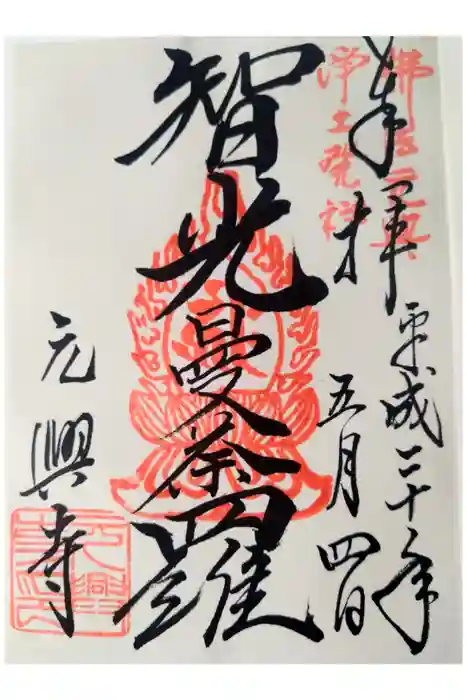 奉拝
佛法元興
浄土発祥
平成二十年
五月四日
智光曼荼羅
元興寺